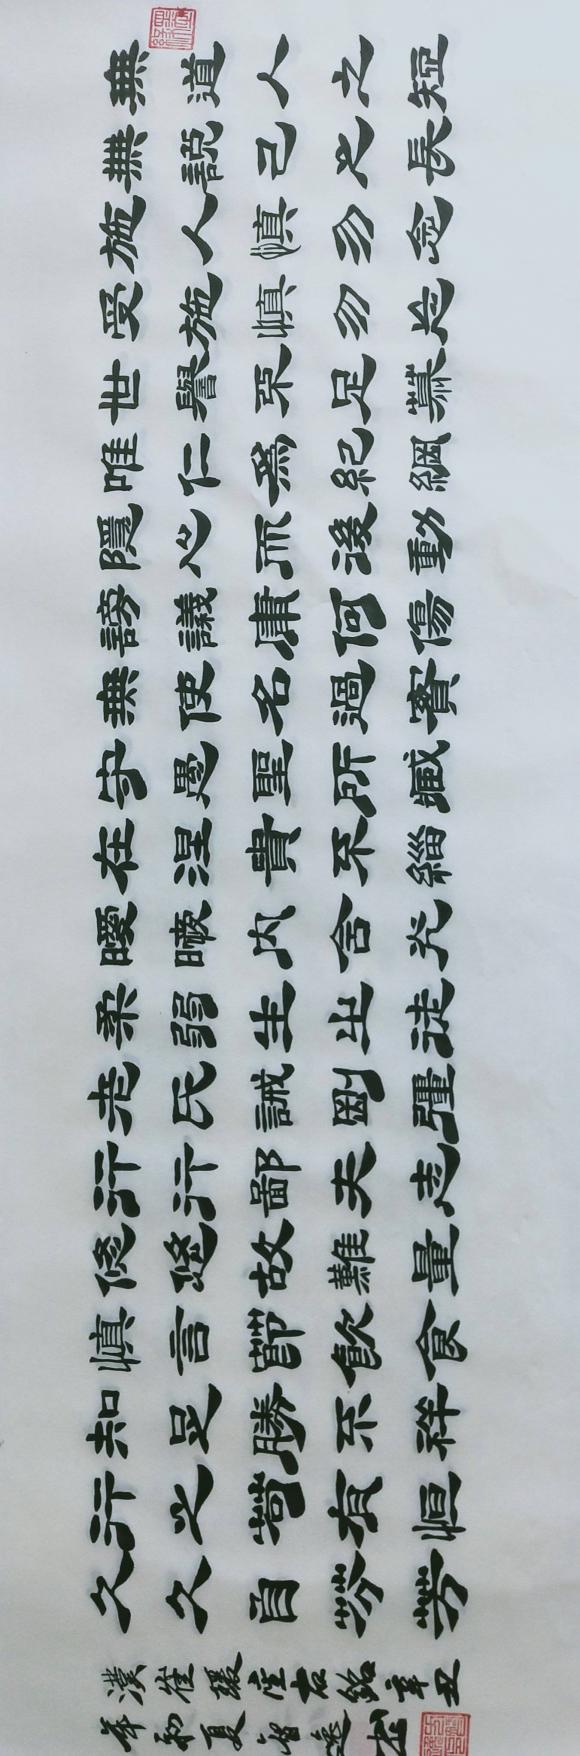 無道人之短
無說己之長
施人慎勿念
受施慎勿忘
世譽不足慕
唯仁為紀綱
隱心而後動
謗議庸何傷
無使名過實
守愚聖所臧
在涅貴不緇
曖曖內含光
柔弱生之徒
老氏誡剛彊
行行鄙夫志
悠悠故難量
慎言節飲食
知足勝不祥
行之苟有恒
久久自芬芳
漢崔瑗座右銘辛丑
年初夏